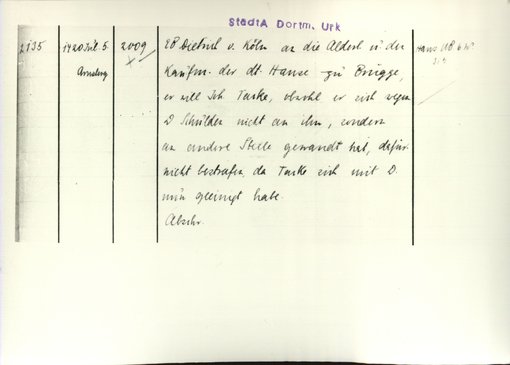 StadtA Dortm. Urk
2135
1420 Juli 5.
Arnsberg
2009
EB Dietrich v. Köln an die Alderl. u. den
Kaufm. der dt. Hanse zu Brügge,
er will Joh. Taske, obwohl er sich wegen
D Schulden nicht an ihn, sondern
an andere Stelle gewandt hat, dafür
nicht bestrafen, da Taske sich mit D.
nun geeinigt habe.
Abschr.
Hans UB 6 Nr